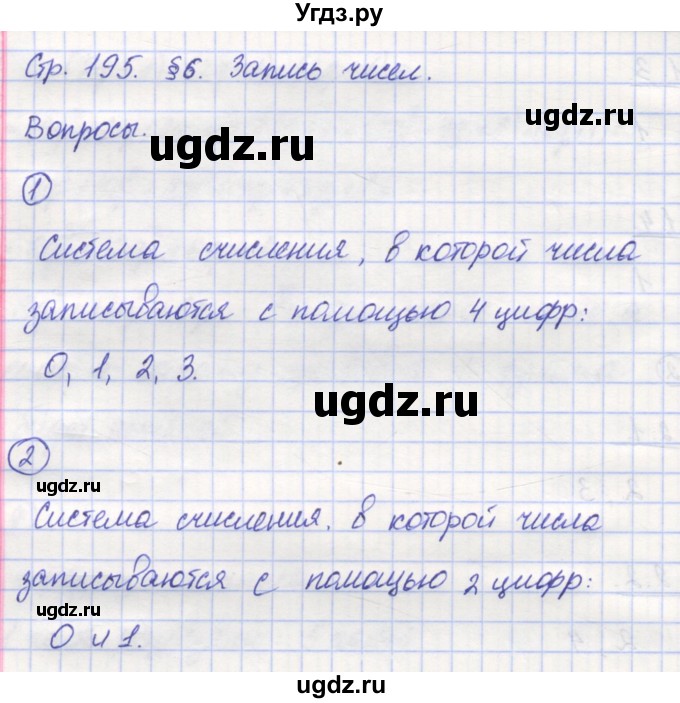 Угдз.ру
Стр. 195. §6. Запись чисел.
Вопросы.
ugdz.ru
ugdz.ru
1
Система счисления, в которой числа
записываются с помощью 4 цифр:
0, 1, 2, 3.
ugdz.ru
2
ugdz.ru
Система счисления, в которой числа
записываются с помощью 2 цифр:
ugdz.ru
0 и 1.
ugdz.ru